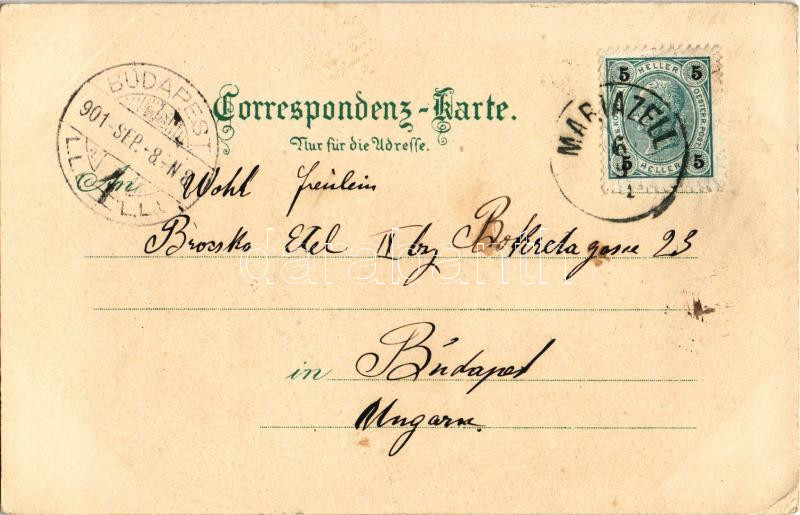 BUDAPEST
901-SEP.-8-N
Correspondenz-Karte.
Nur für die Adresse.
5 HELLER 5
OESTERR. POST.
5 HELLER 5
MARIAZELL
6
An Wohl freulein
Brozsko Etel IV bz Bokreta gasse 23
in Budapest
Ungarn.
darabanth